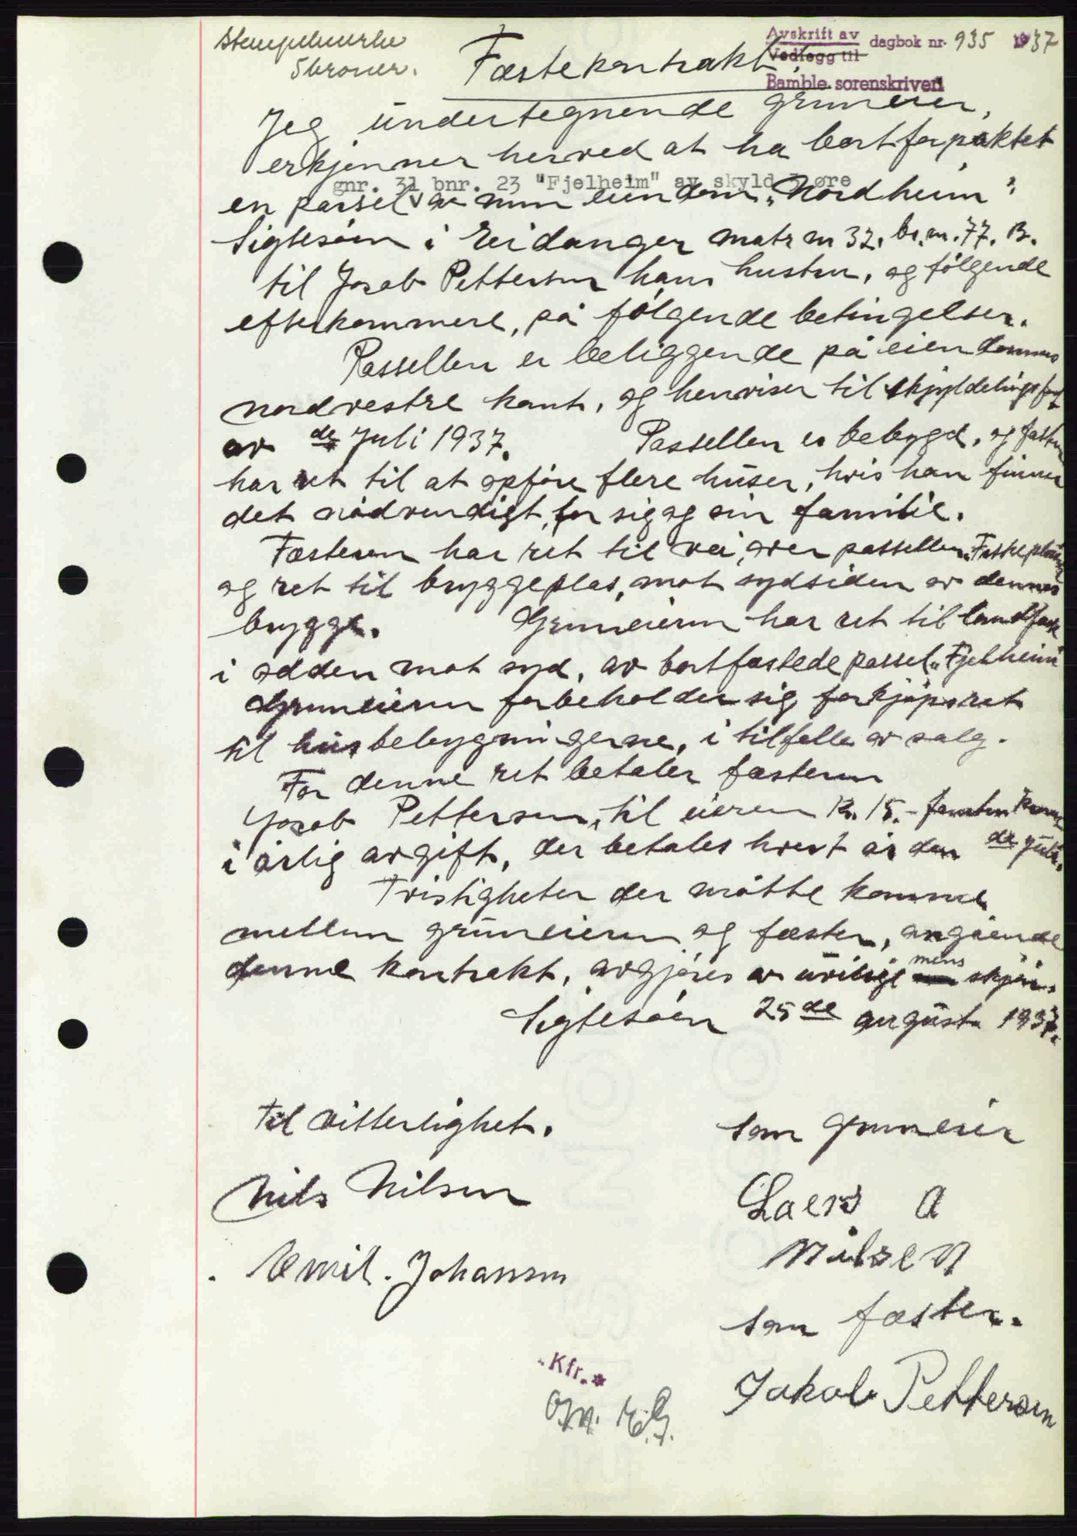 Stempelmerke
5 kroner.
Avskrift av
Vedlegg til
dagbok nr. 935 1937
Bamble sorenskriveri
Fæstekontrakt
Jeg undertegnende gruneier,
erkjenner herved at ha bortforpaktet
gnr. 31 bnr. 23 "Fjelheim" av skyld øre
en parsel av min eiendom "Nordheim"
Sigtesøen i Eidanger matr nr 32. br. nr. 77. B.
til Jacob Pettersen hans hustru, og følgende
efterkommere, på følgende betingelser.
Passellen er beliggende på eiendommens
nordvestre kant, og henviser til skjyldelingsforr
av de Juli 1937. Passellen er bebygd, og fæster
har ret til at opføre flere huser, hvis han finner
det nødvendigt, for sig og sin familie.
Fæsteren har ret til vei, over passellen Fiskeplassen
og ret til bryggeplas, mot sydsiden av dennes
brygge. Gruneieren har ret til landfæste
i odden mot syd, av bortfæstede passel "Fjelheim"
Gruneieren forbeholder sig forkjøpsret
til husbebygningerne, i tilfelle av salg.
For denne ret betaler fæsteren
Jacob Pettersen, til eieren Kr. 15.- femten kroner
i årlig avgift, der betales hvert år den de juli.
Tvistigheter der måtte komme
mellem gruneieren og fæster, angående
denne kontrakt, avgjøres av uvilige mens skjøn.
Sigtesøen 25de august 1937.
Til vitterlighet.
som gruneier
Nils Nilsen
Laers A
Nilsen
Emil. Johansen
som fæster.
Kfr.
Jakob Pettersen